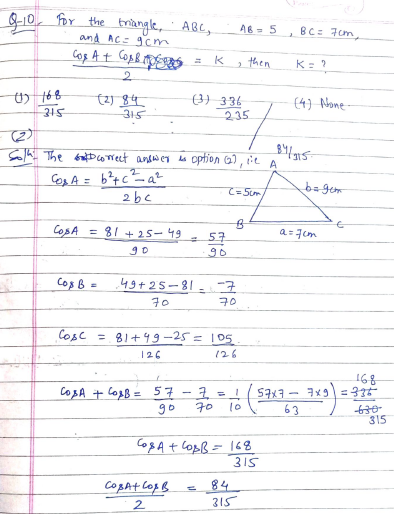 Q-10. For the triangle, ABC, AB = 5, BC = 7cm,
and AC = 9cm
CosA + CosB / 2 = K, then K = ?
(1) 168/315 (2) 84/315 (3) 336/235 (4) None.
(2)
Solⁿ: The correct answer is option (2), i.e 84/315
CosA = b²+c²-a² / 2bc
A
c=5cm b=9cm
B a=7cm C
CosA = 81 + 25 - 49 / 90 = 57/90
CosB = 49+25-81 / 70 = -7/70
CosC = 81+49-25 / 126 = 105/126
CosA + CosB = 57/90 - 7/70 = 1/10 (57x7 - 7x9 / 63) = 336/630 168/315
CosA + CosB = 168/315
CosA+CosB / 2 = 84/315